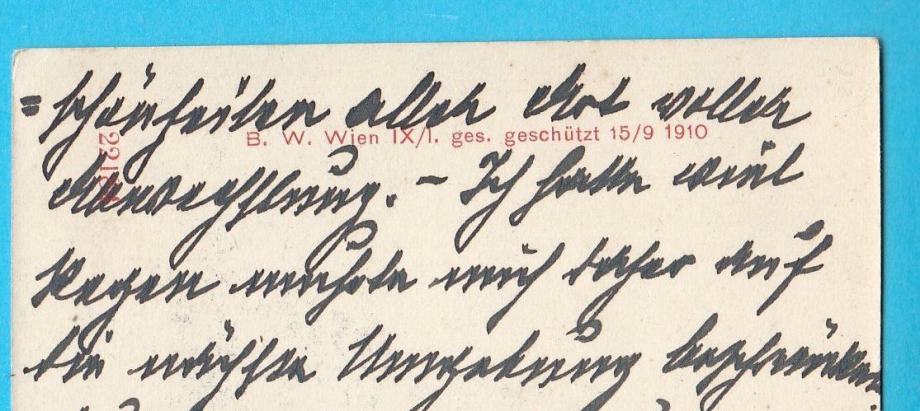 =schönheiten aller Art voller
B. W. Wien IX/1. ges. geschützt 15/9 1910
Abwechslung. – Ich hatte viel
Regen mußte mich daher auf
die nächste Umgebung beschränken